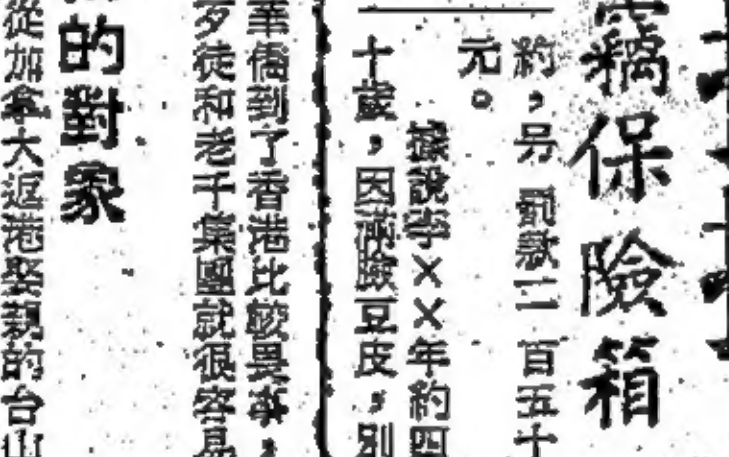 竊保險箱
約，另 罰款二百五十
元。
據說李××年約四
十歲，因滿臉豆皮，別
華僑到了香港比較畏事，
歹徒和老千集團就很容易
的對象
從加拿大返港娶親的台山